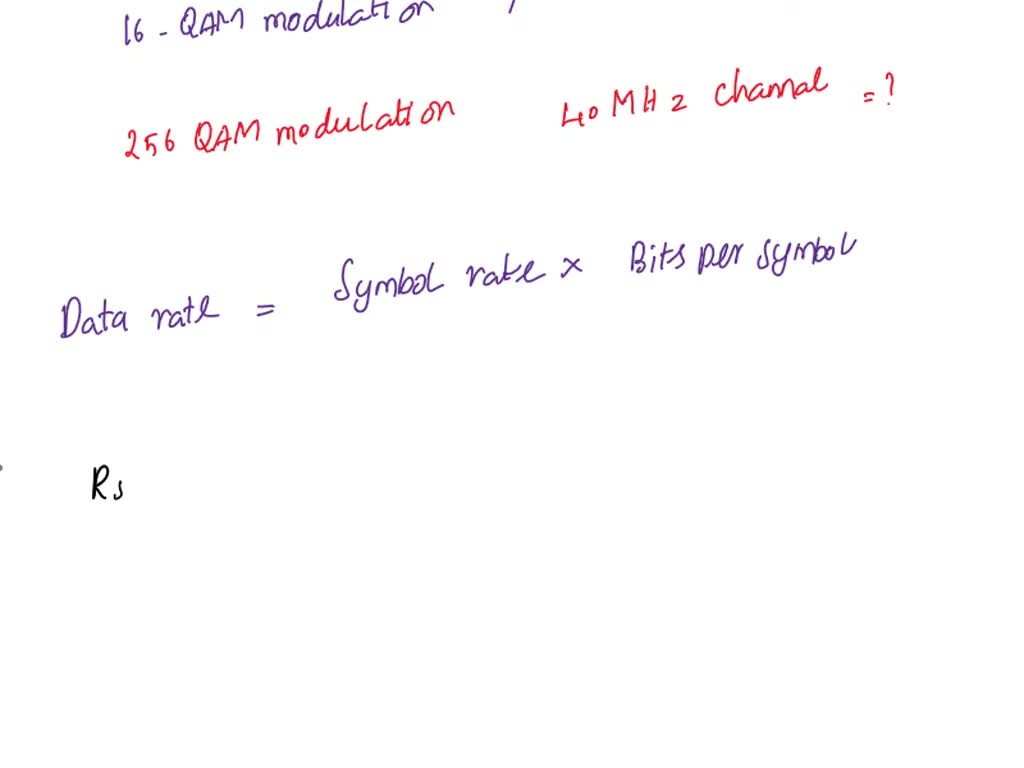 16 - QAM modulation
256 QAM modulation 40 MHz channal = ?
Data rate = Symbol rate × Bits per symbol
Rs